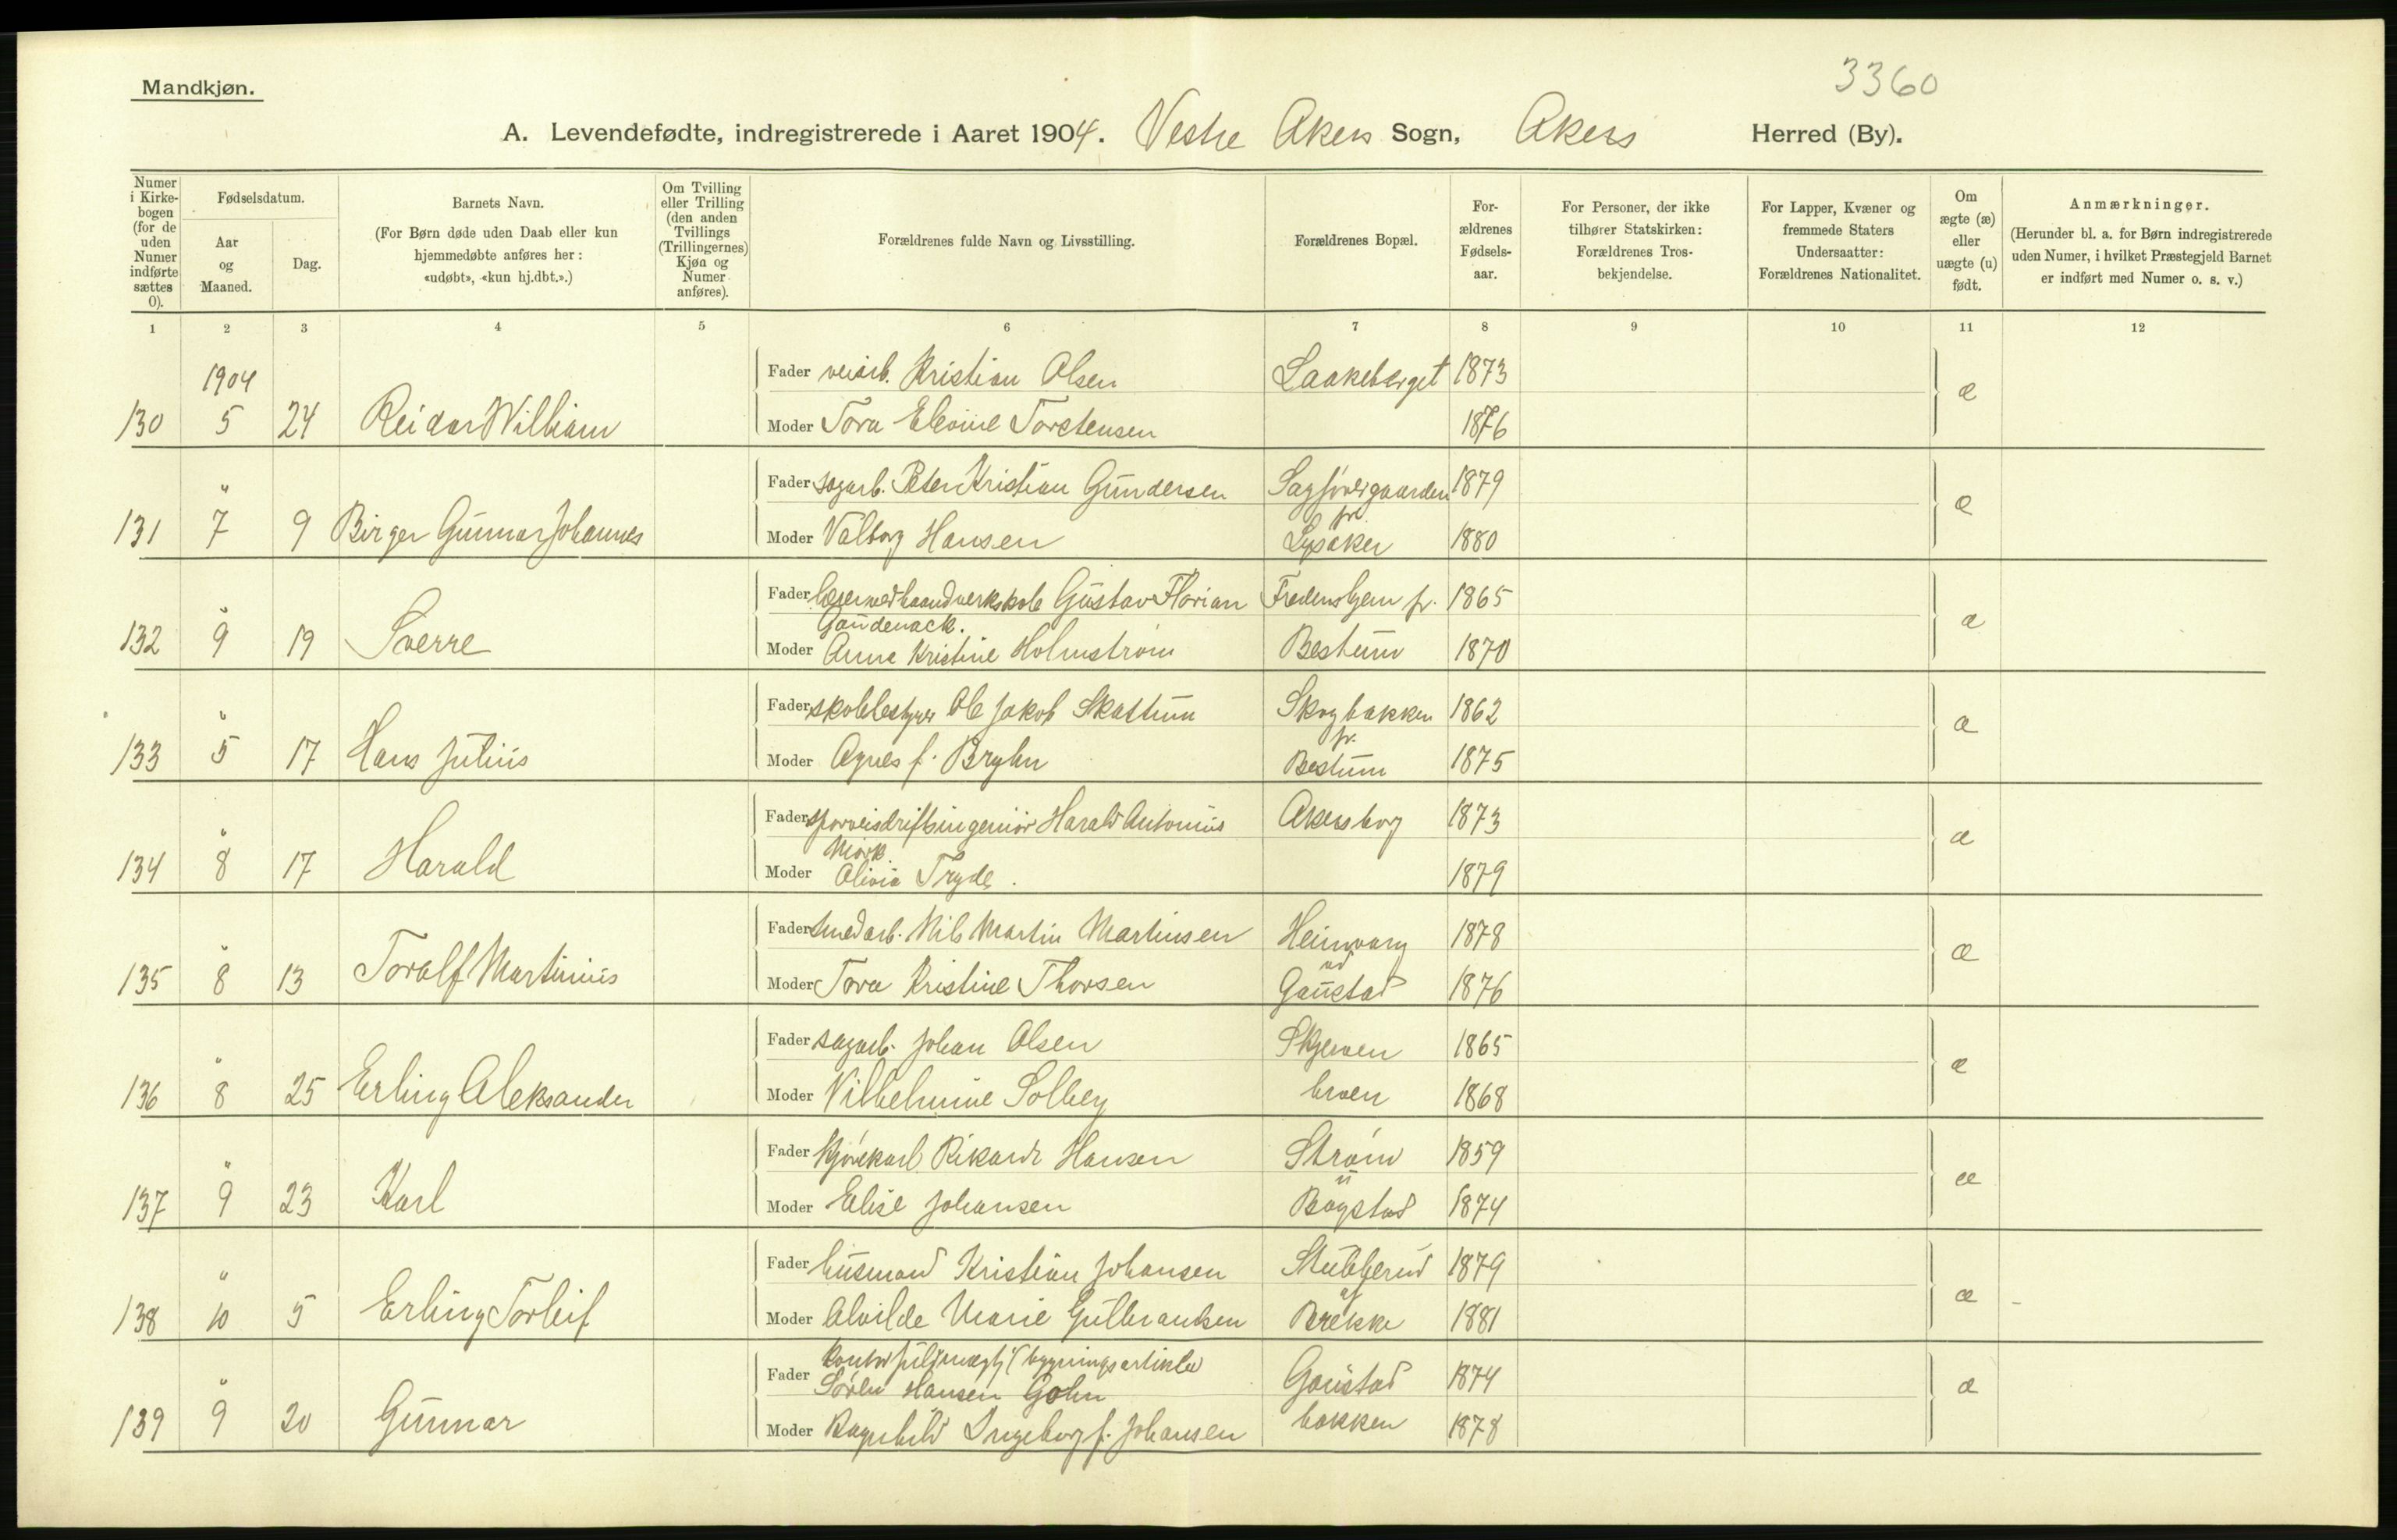 3360
Mandkjøn.
A. Levendefødte, indregistrerede i Aaret 1904. Vestre Akers Sogn, Akers Herred (By).
Numer i Kirkebogen (for de uden Numer indførte sættes 0).
Fødselsdatum.
Aar og Maaned.
Dag.
Barnets Navn.
(For Børn døde uden Daab eller kun hjemmedøbte anføres her: «udøbt», «kun hj.dbt.».)
Om Tvilling eller Trilling (den anden Tvillings (Trillingernes) Kjøn og Numer anføres).
Forældrenes fulde Navn og Livsstilling.
Forældrenes Bopæl.
Forældrenes Fødselsaar.
For Personer, der ikke tilhører Statskirken: Forældrenes Trosbekjendelse.
For Lapper, Kvæner og fremmede Staters Undersaatter: Forældrenes Nationalitet.
Om ægte (æ) eller uægte (u) født.
Anmærkninger.
(Herunder bl. a. for Børn indregistrerede uden Numer, i hvilket Præstegjeld Barnet er indført med Numer o. s. v.)
1 2 3 4 5 6 7 8 9 10 11 12
1904
Fader veiarb. Kristian Olsen Laakeberget 1873
130 5 24 Reidar William æ
Moder Tora Elevine Torstensen 1876
Fader sagarb. Peter Kristian Gundersen 1879
131 " 7 9 Birger Gunnar Johannes pr. æ
Moder Valborg Hansen Lysaker 1880
Fader Gustav Florian Fredenshjem pr. 1865
Gaudenack.
132 " 9 19 Sverre æ
Moder Anna Kristine Holmstrøm Bestum 1870
Fader skolebestyrer Ole Jakob Skattum Skogbakken 1862
133 " 5 17 Hans Julius pr. æ
Moder Agnes f. Bryhn Bestum 1875
Fader sporveisdriftsingeniør Harald Antonius Akersborg 1873
Mørk.
134 " 8 17 Harald æ
Moder Alivia Tryde. 1879
Fader smedarb. Nils Martin Martinsen Heimvang 1878
135 " 8 13 Toralf Martinius ud æ
Moder Tora Kristine Thorsen Gaustad 1876
Fader sagarb. Johan Olsen Skjerven 1865
136 " 8 25 Erling Aleksander æ
Moder Vilhelmine Solberg broen 1868
Fader kjørekarl Rikard Hansen Strøm 1859
137 " 9 23 Karl u æ
Moder Elise Johansen Bogstad 1874
Fader husmand Kristian Johansen Stubberud 1879
138 " 10 5 Erling Torleif af æ
Moder Alvilde Marie Gulbrandsen Brekke 1881
Fader kontorfuldmægtig (bygningsartikler)
Søren Hansen Gohn Gaustad 1874
139 " 9 20 Gunnar æ
Moder Ragnhild Ingeborg f. Johansen bakken 1878